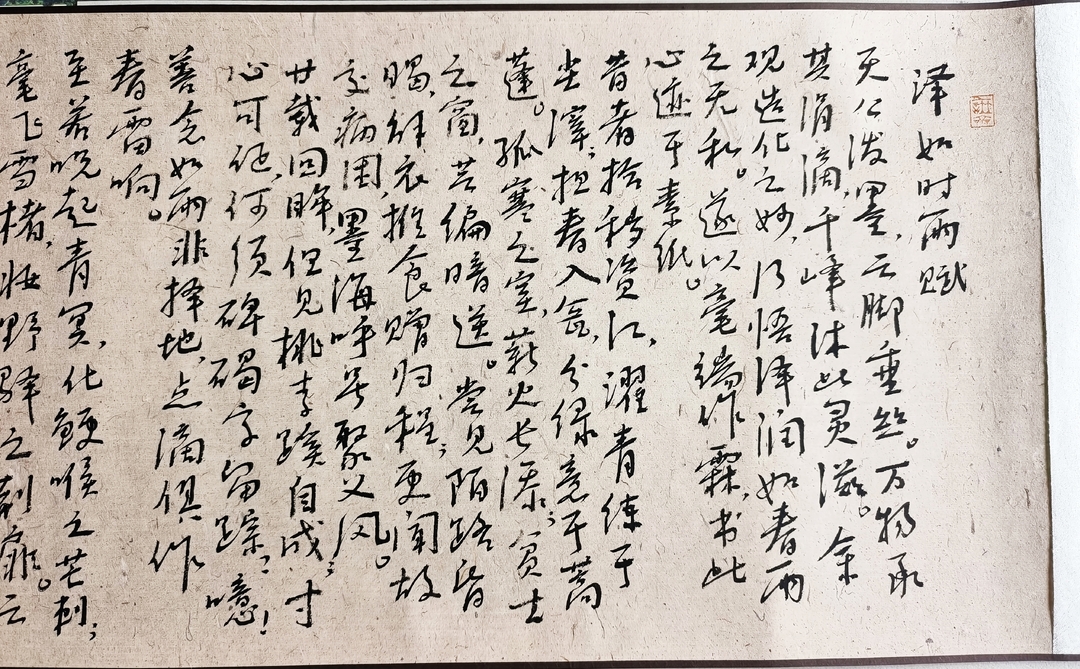 泽如时雨赋
天公泼墨，云脚垂丝。万物承
其涓滴，千峰沐此灵滋。余
观造化之妙，乃悟泽润如春雨
之无私。遂以毫端作霖，书此
心迹于素纸。
昔者拾穗资江，濯青练于
尘滓；担春入瓮，分绿意于蒿
蓬。孤寒之室，薪火长添；贫士
之窗，芸编暗送。尝见陌路皆
赐，解衣推食赠归程；更闻故
交病困，墨海呼号聚义风。
廿载回眸，但见桃李蹊自成；寸
心可证，何须碑碣字留踪？噫！
善念如雨非择地，点滴俱作
春雷响。
至若
起青冥，化鲠喉之芒刺；
毫飞雪楮，妆野驿之荆扉。云